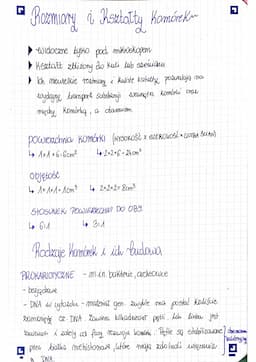 Rozmiary i Kształty Komórek
▸ Widoczne tylko pod mikroskopem
▸ Kształt zbliżony do kuli lub sześcianu
▸ Ich niewielkie rozmiary i kuliste kształty pozwalają na
wydajny transport substancji wewnątrz komórki oraz
między komórką, a otoczeniem
POWIERZCHNIA KOMÓRKI (WYSOKOŚĆ × SZEROKOŚĆ × ŚCIAN)
↳ 1×1×6=6cm² ↳ 2×2×6=24cm²
OBJĘTOŚĆ
↳ 1×1×1=1cm³ ↳ 2×2×2=8cm³
STOSUNEK POWIERZCHNI DO OBJ.
↳ 6:1 ↳ 3:1
Rodzaje Komórek i ich budowa
PROKARIOTYCZNE - m.in. bakterie,
- bezjądrowe
- DNA w cytozolu - materiał gen. zwykle ma postać koliście
zamkniętej cz. DNA. Zawiera kilkadziesiąt pętli. Ich liczba jest
i zależy od fazy rozwoju komórki. Pętle są stabilizowane
przez białka niehistonowe, które mają zdolność wiązania
z DNA.